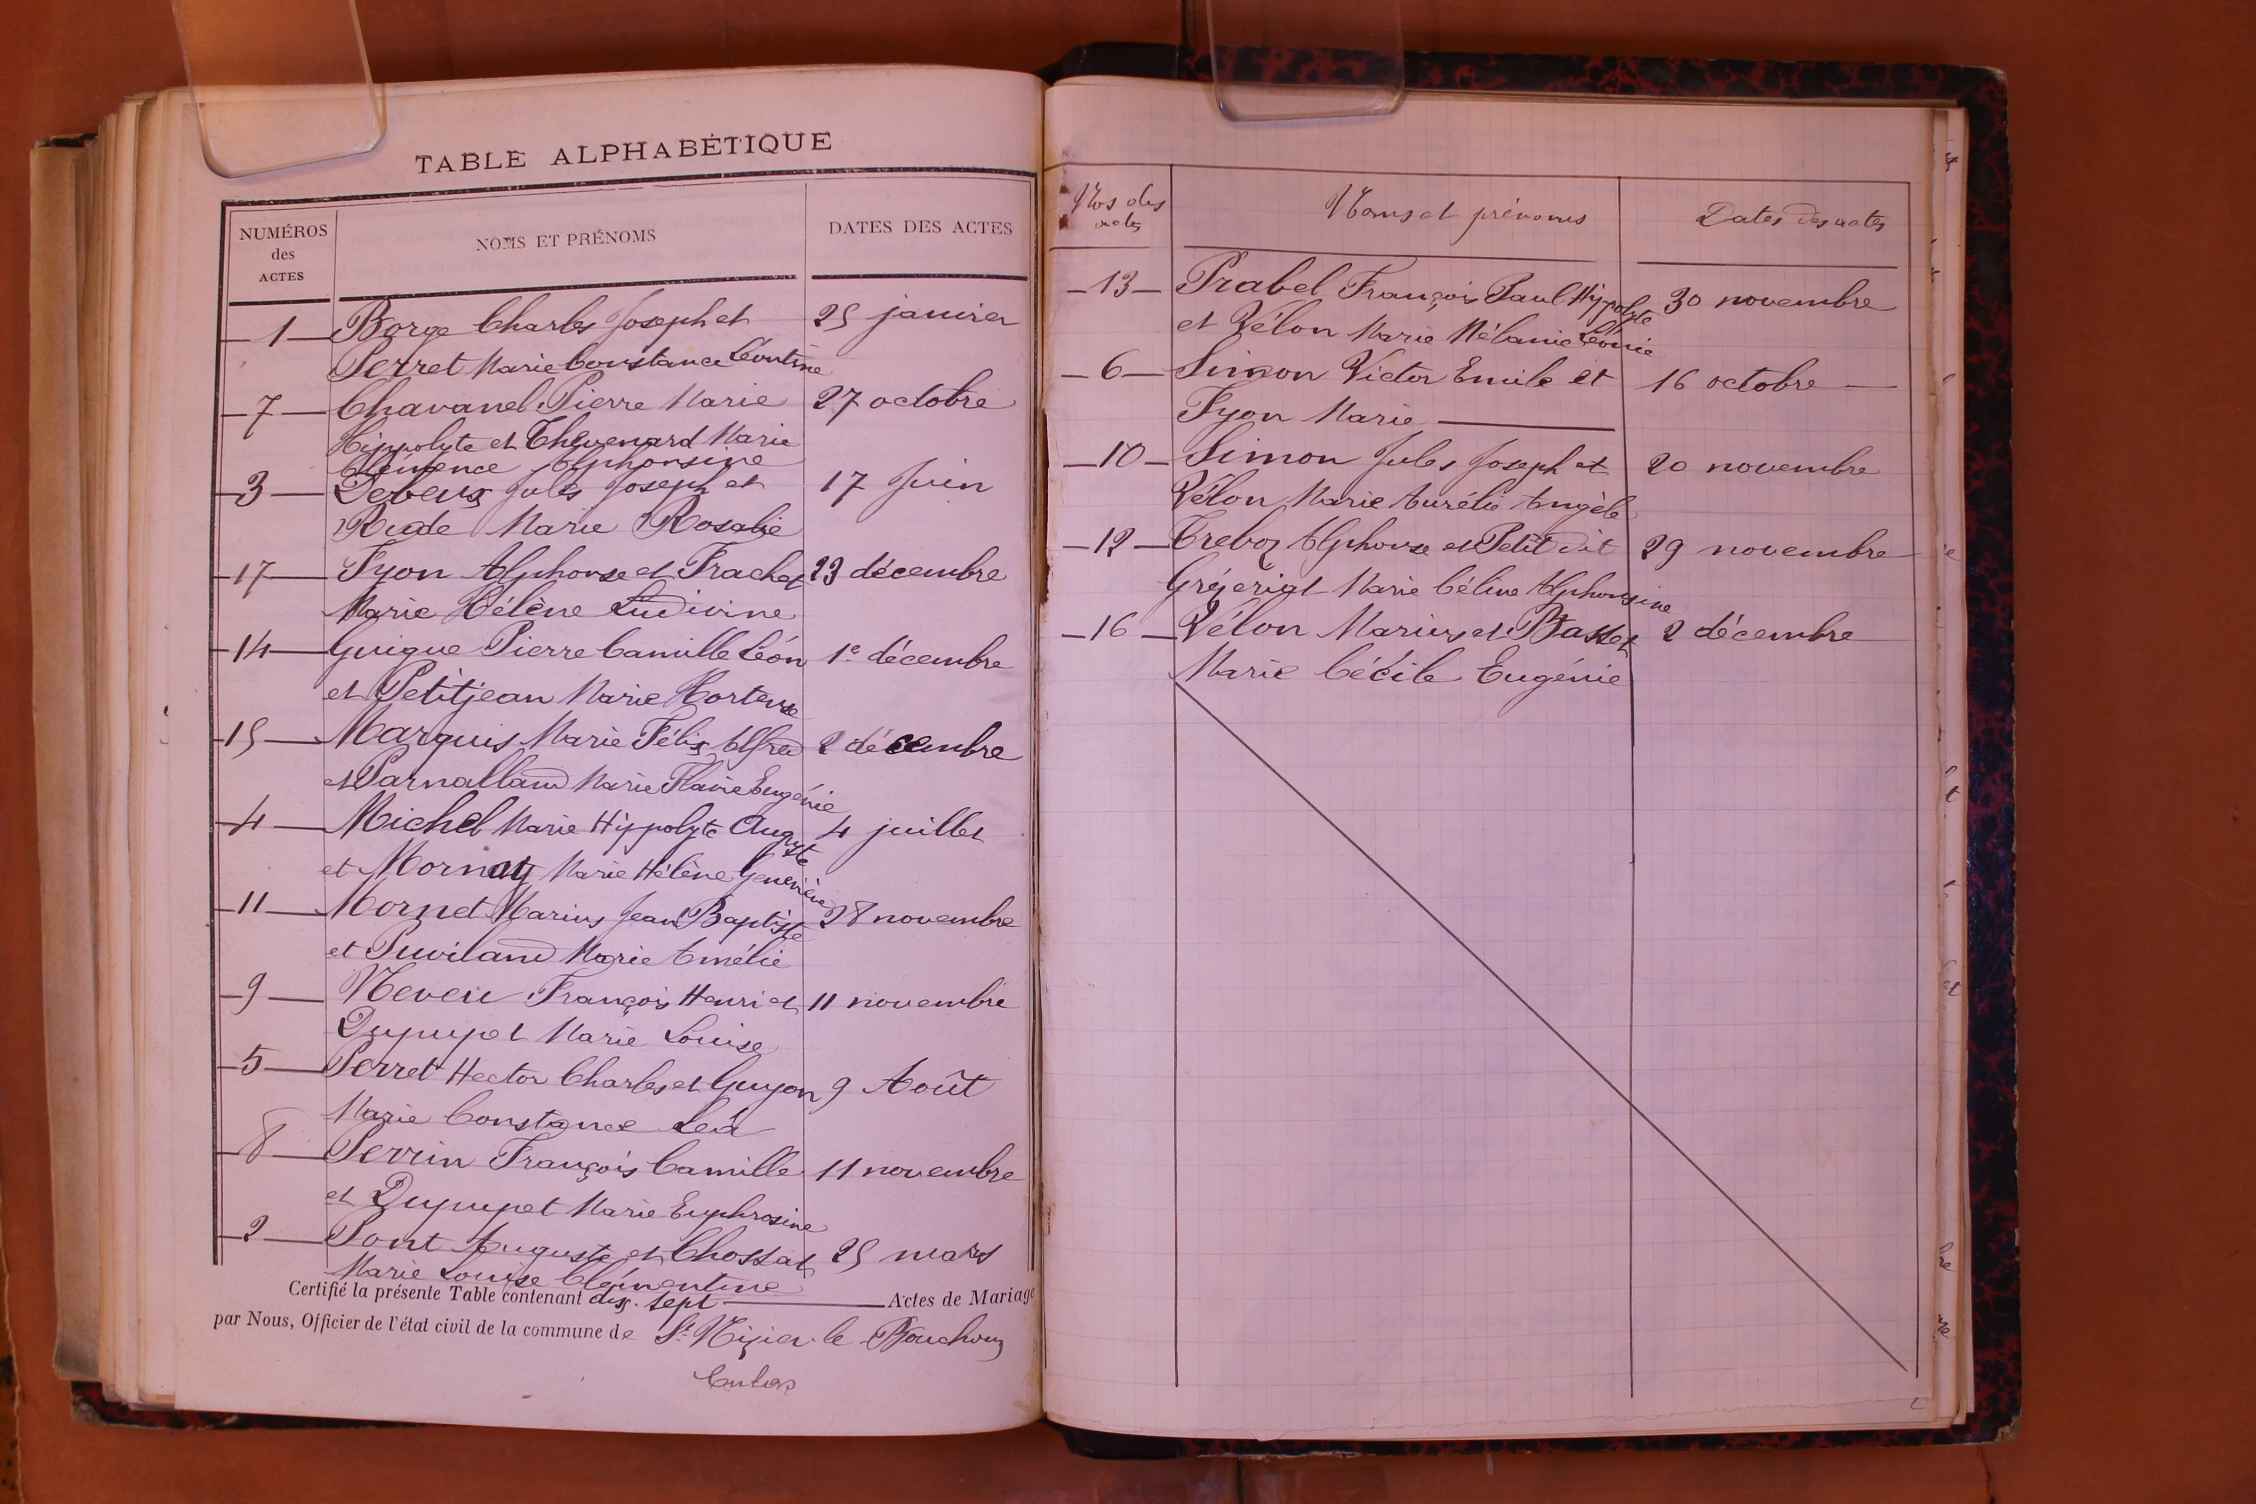 TABLE ALPHABÉTIQUE
NUMÉROS des ACTES
NOMS ET PRÉNOMS
DATES DES ACTES
1 Borge Charles Joseph et 25 janvier
Perret Marie Constance Léontine
7 Chavanel Pierre Marie 27 octobre
Hippolyte et Thevenard Marie
Clémence Alphonsine
3 Debeux Jules Joseph et 17 Juin
Rude Marie Rosalie
17 Fyon Alphonse et Frachet 23 décembre
Marie Hélène Ludivine
14 Guigue Pierre Camille Léon 1e décembre
et Petitjean Marie Hortense
15 Marquis Marie Félix Alfred 2 décembre
et Parnalland Marie Flavie Eugénie
4 Michel Marie Hippolyte Auguste 4 juillet
et Mornay Marie Hélène Geneviève
11 Mornet Marius Jean Baptiste 28 novembre
et Puviland Marie Amélie
9 Neveu François Henri et 11 novembre
Dupupet Marie Louise
5 Perret Hector Charles et Guyon 9 Août
Marie Constance Léa
8 Perrin François Camille 11 novembre
et Dupupet Marie Euphrosine
2 Pont Auguste et Chossat 25 mars
Marie Louise Clémentine
Certifié la présente Table contenant dix-sept Actes de Mariage
par Nous, Officier de l'état civil de la commune de St Nizier le Bouchoux
Nos des actes
Noms et prénoms
Dates des actes
13 Prabel François Paul Hyppolyte 30 novembre
et Vélon Marie Mélanie Léonie
6 Simon Victor Emile et 16 octobre
Fyon Marie
10 Simon Jules Joseph et 20 novembre
Vélon Marie Aurélie Angèle
12 Treboz Alphonse et Petit dit 29 novembre
Gréjeriat Marie Céline Alphonsine
16 Vélon Marius et Basset 2 décembre
Marie Cécile Eugénie